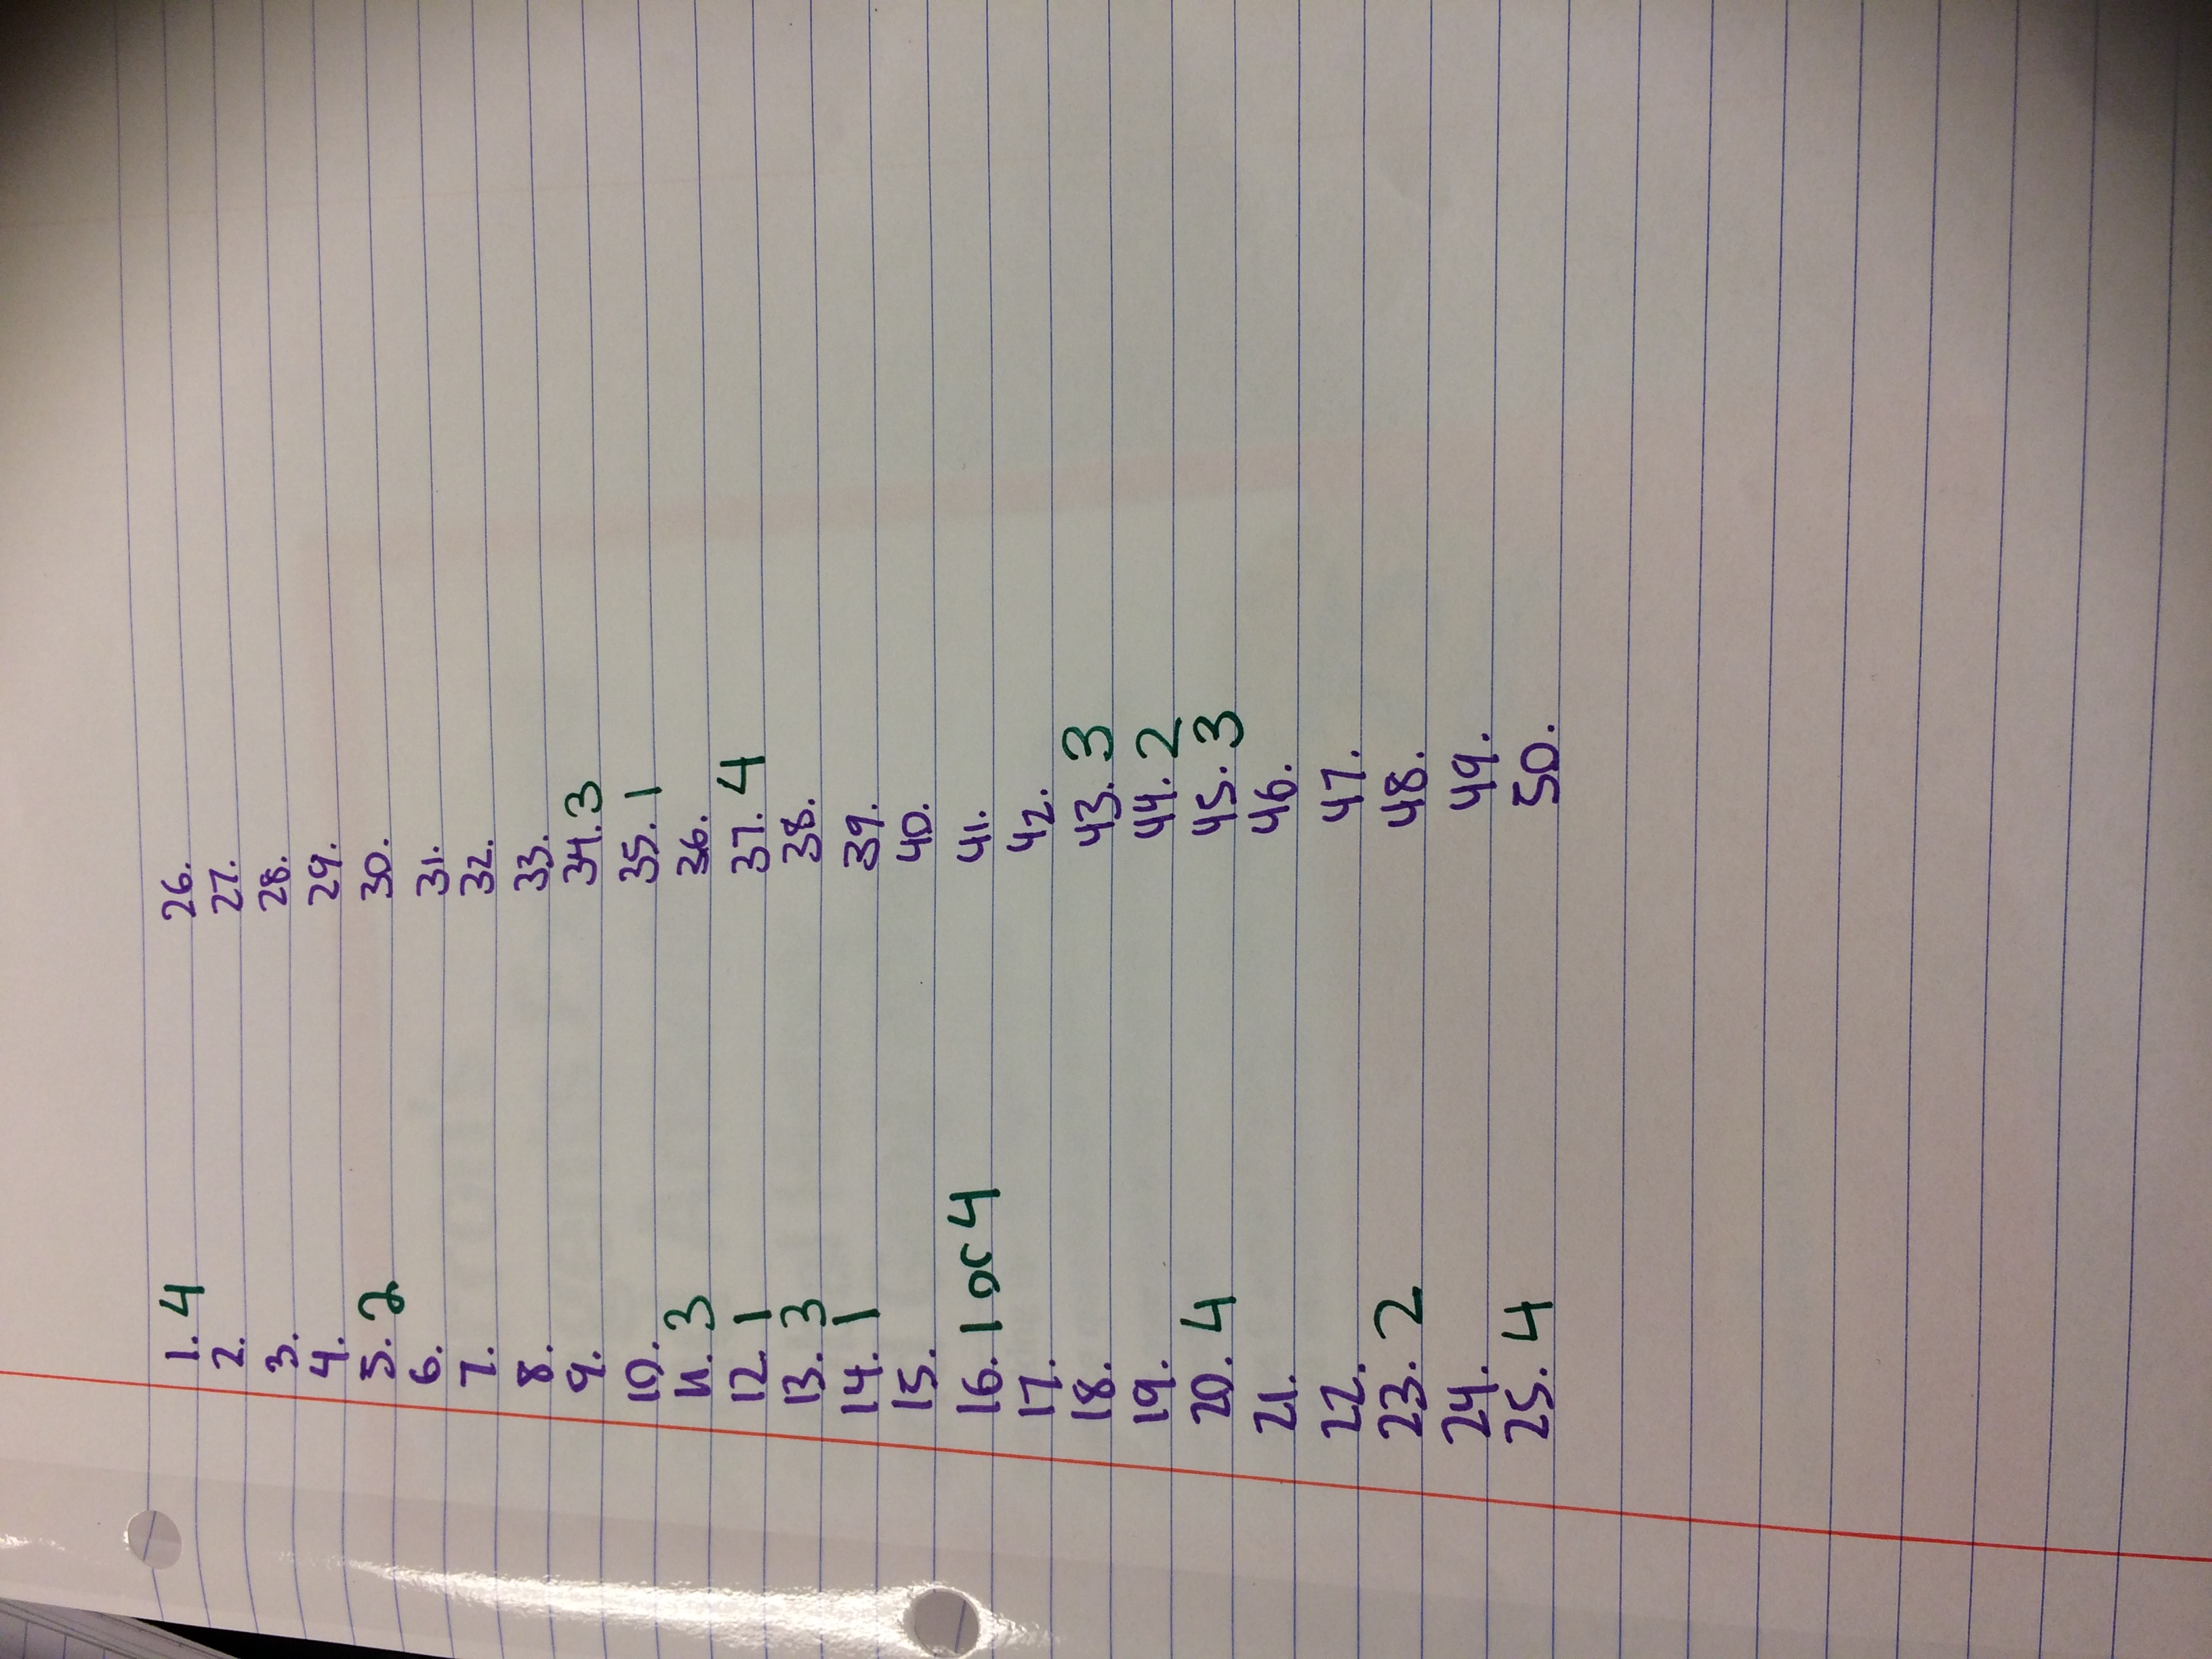 1. 4
2.
3.
4.
5. 2
6.
7.
8.
9.
10.
11. 3
12. 1
13. 3
14. 1
15.
16. 1 or 4
17.
18.
19.
20. 4
21.
22.
23. 2
24.
25. 4
26.
27.
28.
29.
30.
31.
32.
33.
34. 3
35. 1
36.
37. 4
38.
39.
40.
41.
42.
43. 3
44. 2
45. 3
46.
47.
48.
49.
50.